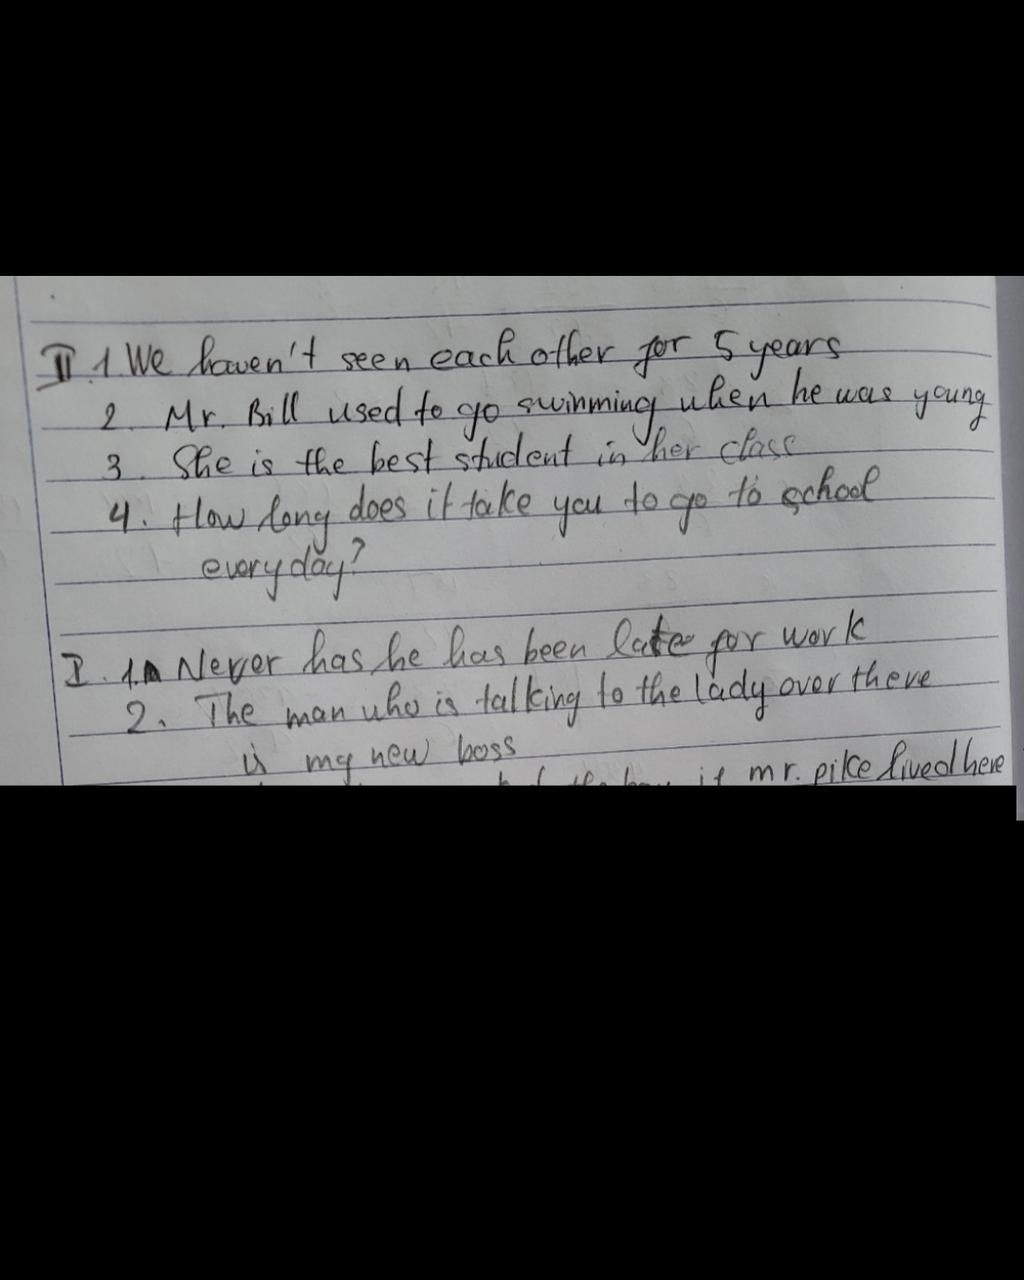 II. 1 We haven't seen each other for 5 years
2. Mr. Bill used to go swinming when he was young
3. She is the best student in her class
4. How long does it take you to go to school
everyday?
I. 1. Never has he has been late for work
2. The man who is talking to the lady over there
is my new boss
if mr. pike lived here